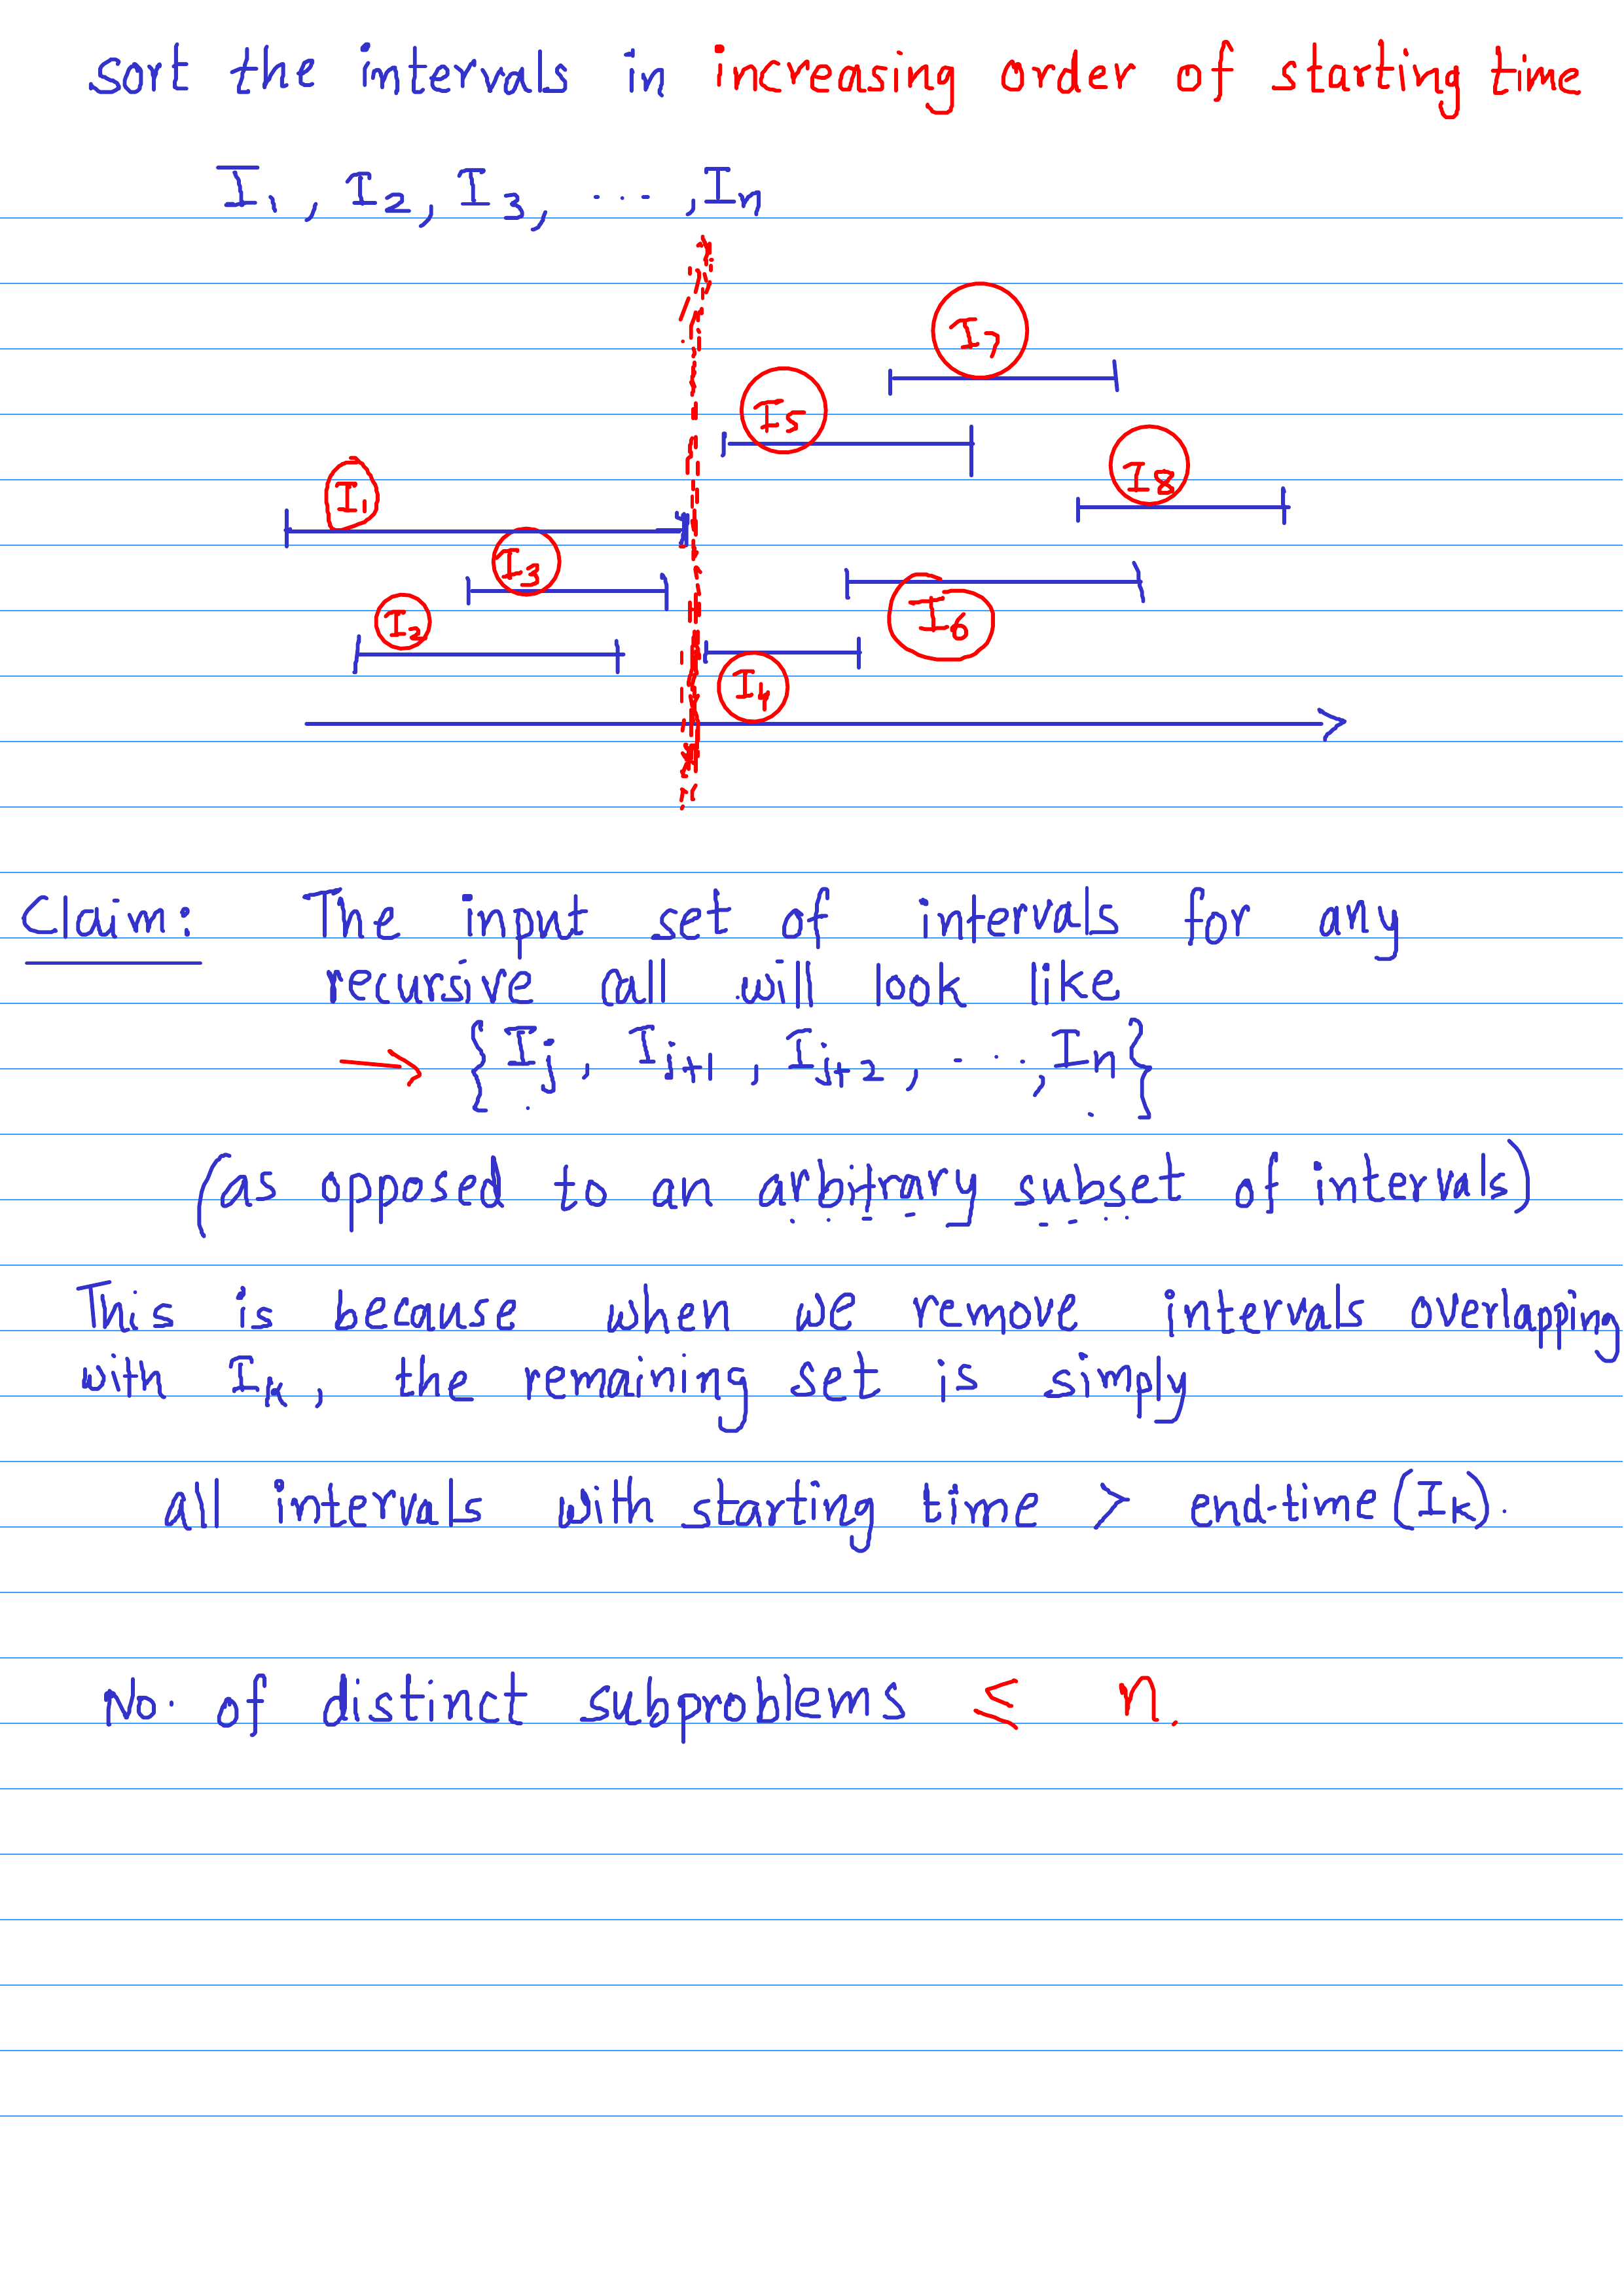 sort the intervals in increasing order of starting time
I₁, I₂, I₃, ....., Iₙ
I₇
I₅
I₈
I₁
I₃
I₆
I₂
I₄
Claim: The input set of intervals for any
recursive call will look like
→ {Iⱼ, Iⱼ₊₁, Iⱼ₊₂, ...., Iₙ}
(as opposed to an arbitrary subset of intervals)
This is because when we remove intervals overlapping
with Iₖ, the remaining set is simply
all intervals with starting time > end-time (Iₖ).
No. of distinct subproblems ≤ n.